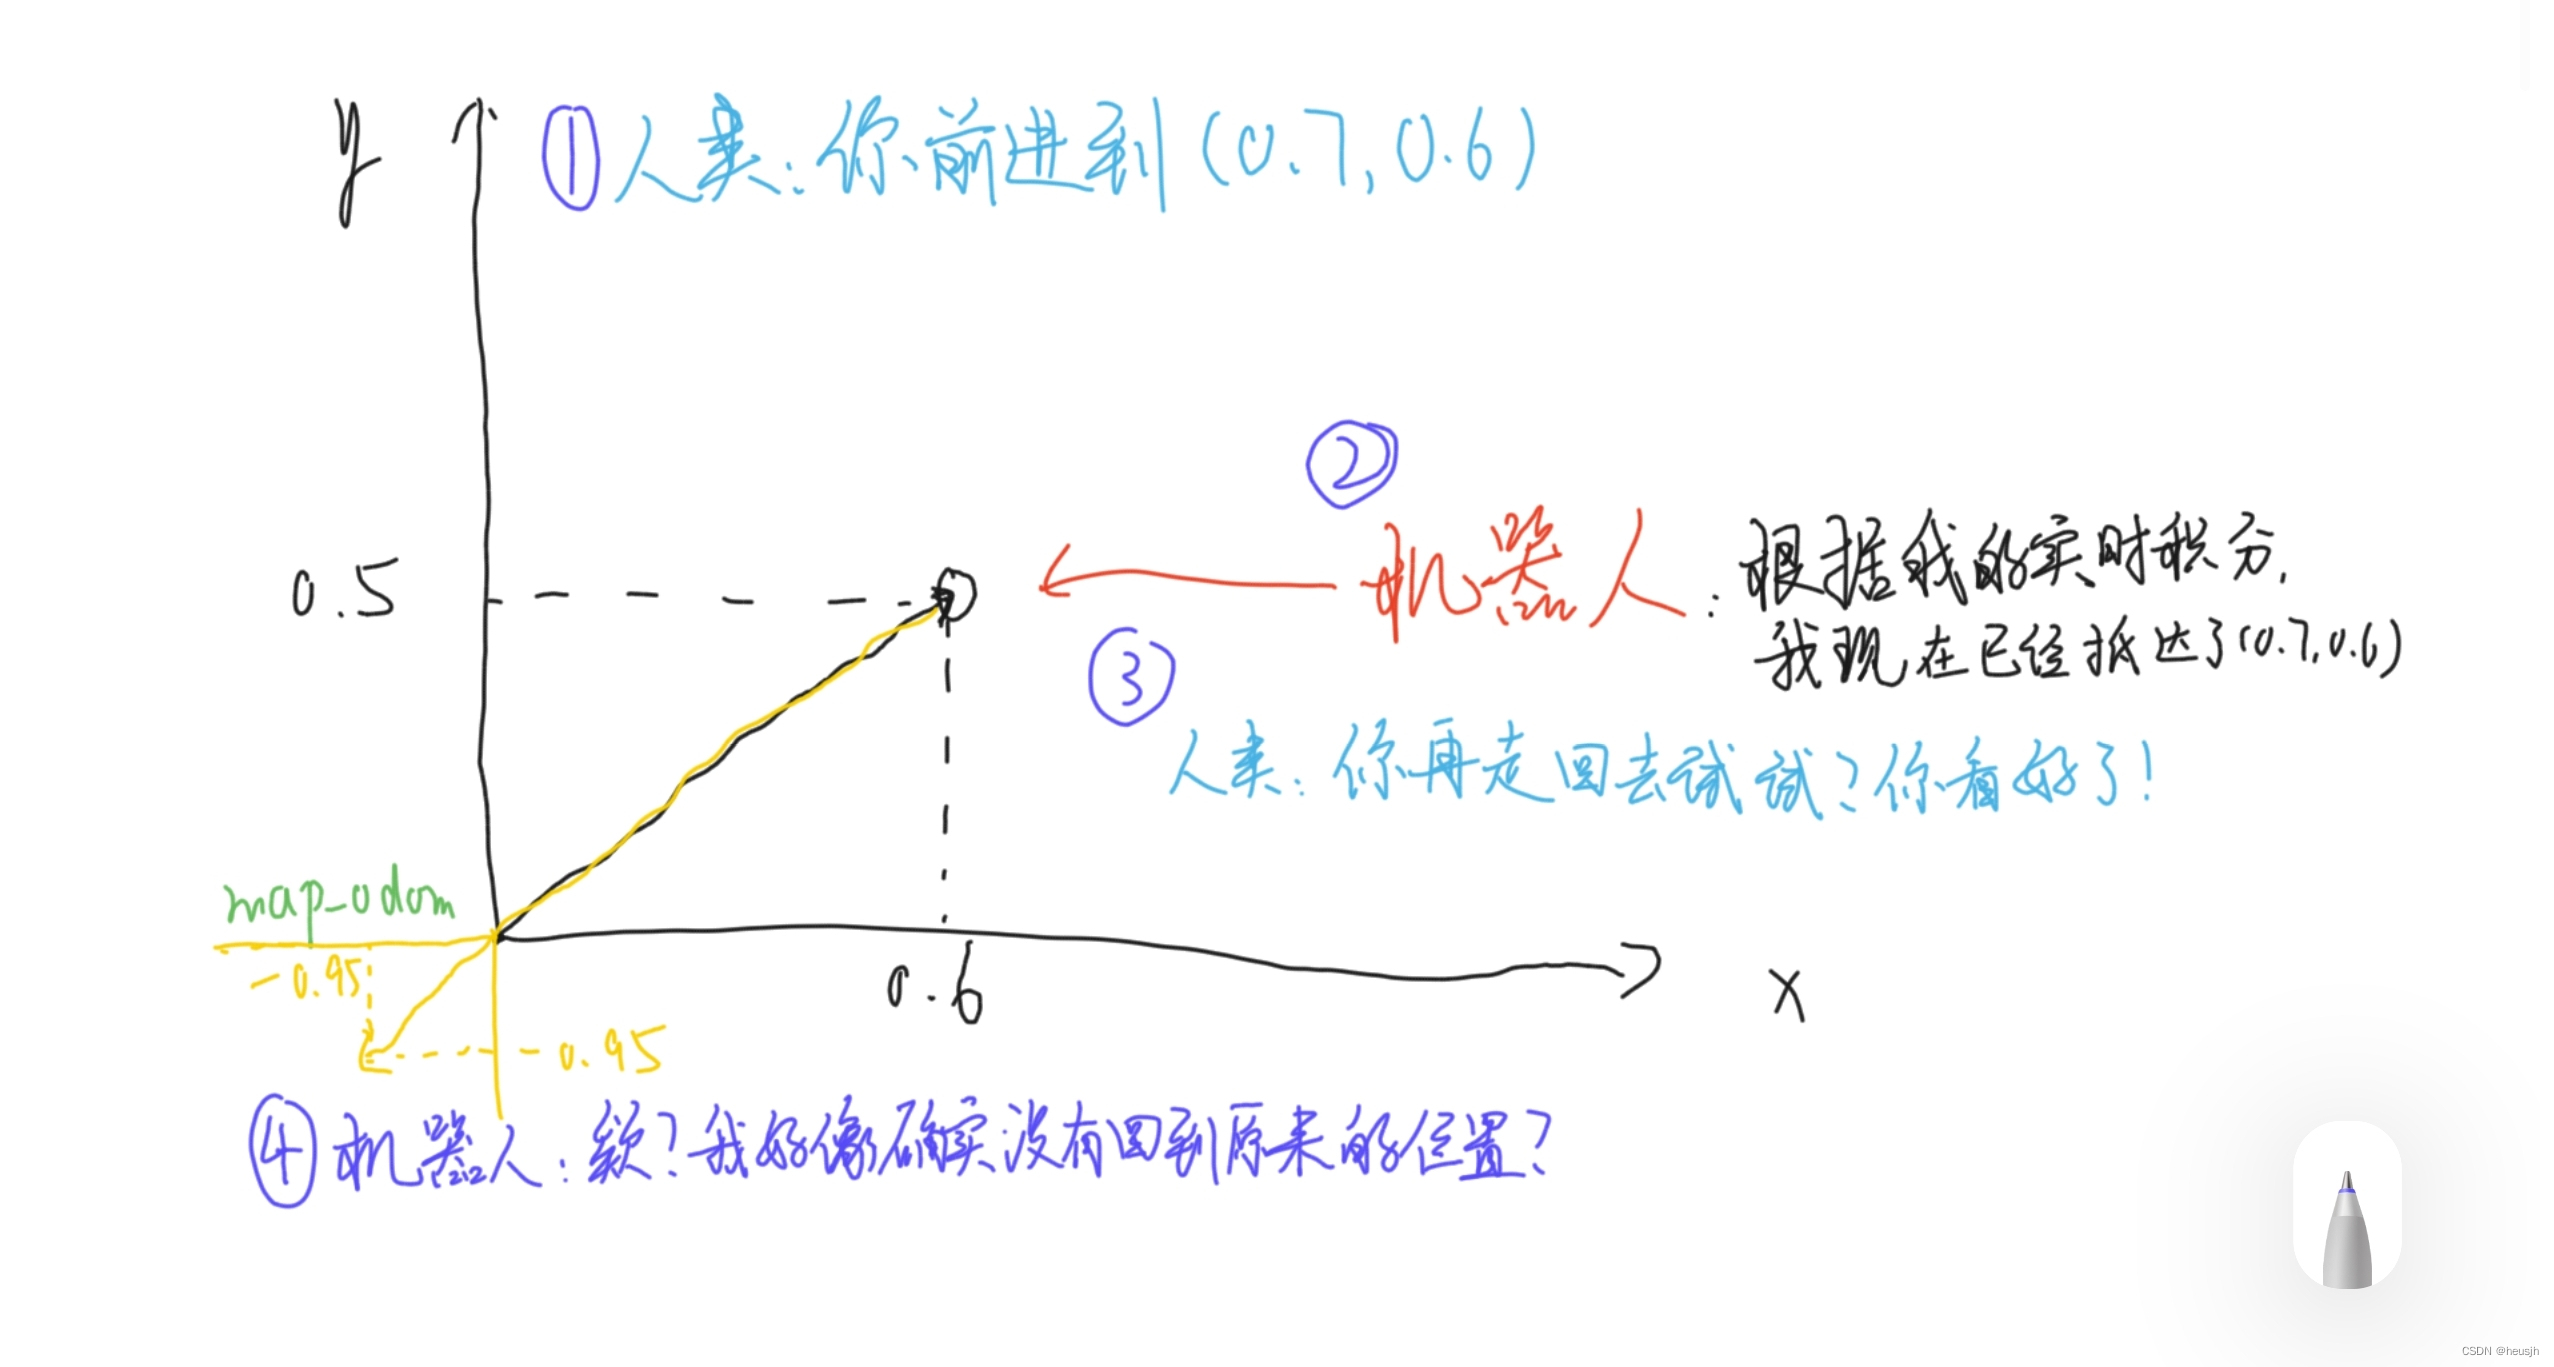 y
①人类：你前进到(0.7,0.6)
②
0.5
机器人：根据我的实时积分，
我现在已经抵达了(0.7,0.6)
③
人类：你再走回去试试？你看好了！
map_odom
-0.95
0.6
x
-0.95
④机器人：欸？我好像确实没有回到原来的位置？
CSDN @heusjh